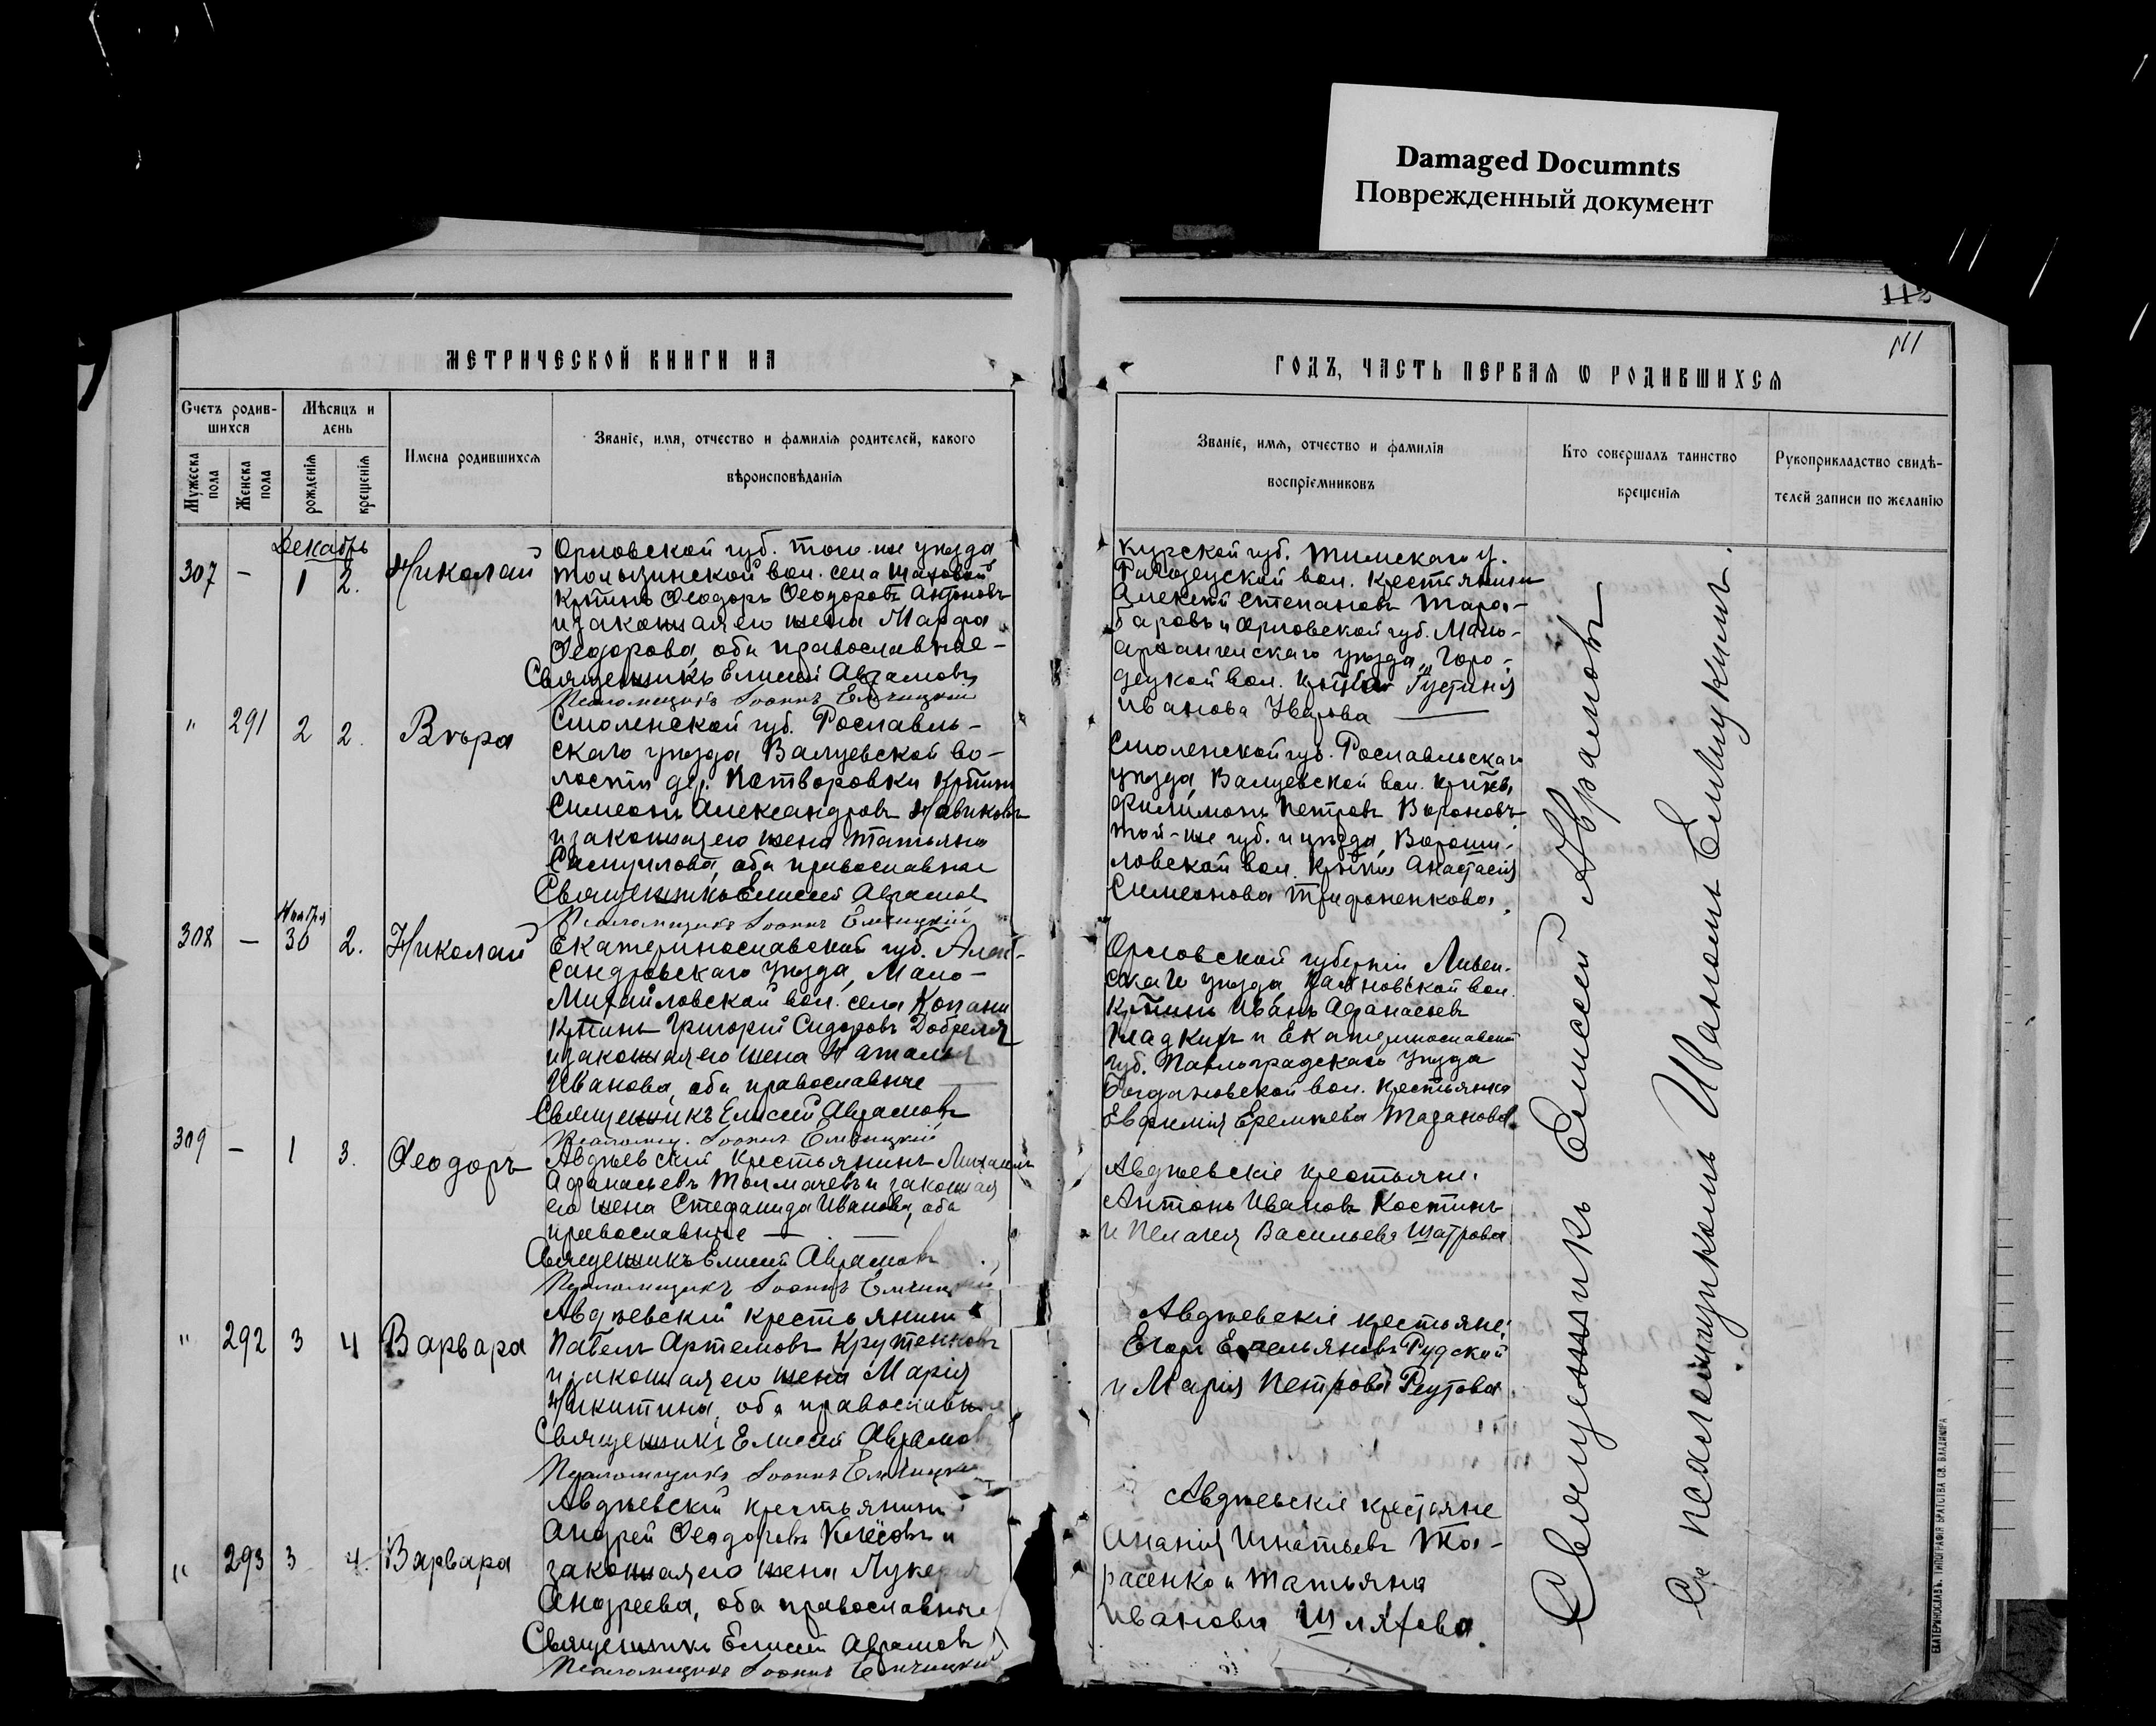 Damaged Documnts
Поврежденный документ
112
111
МЕТРИЧЕСКОЙ КНИГИ НА
ГОДЪ, ЧАСТЬ ПЕРВАЯ Ѡ РОДИВШИХСЯ
Счетъ родив-
шихся
Мужеска пола
Женска пола
Мѣсяцъ и
день
рожденія
крещенія
Имена родившихся
Званіе, имя, отчество и фамилія родителей, какого
вѣроисповѣданія
Званіе, имя, отчество и фамилія
воспріемниковъ
Кто совершалъ таинство
крещенія
Рукоприкладство свидѣ-
телей записи по желанію
Декабрь
307 - 1 2. Николай
Орловской губ. того-же уѣзда
вол. села
Кртинъ Ѳеодоръ Ѳеодоровъ Антоновъ
и законная его жена Марфа
Ѳеодорова, оба православные -
Священникъ Елисей Авраамовъ
Псаломщикъ Іоаннъ Емчицкій
Курской губ. Тимскаго у.
вол. крестьянинъ
Алексѣй Степановъ Тара-
баровъ и Орловской губ. Мало-
архангельскаго уѣзда, Горо-
децкой вол. Устинія
Иванова Уварова
" 291 2 2. Вѣра
Смоленской губ. Рославль-
скаго уѣзда Валуевской во-
лости дер. Кртинъ
Симеонъ Александровъ Новиковъ
и законная его жена Татьяна
Самуилова, оба православные
Священникъ Елисей Авраамовъ
Псаломщикъ Іоаннъ Емчицкій
Смоленской губ. Рославльскаго
уѣзда Валуевской вол.
Филимонъ Петровъ Вороновъ
той-же губ. и уѣзда, Вороши-
ловской вол. Анастасія
Симеонова Трифоненкова.
Ноября
308 - 30 2. Николай
Екатеринославской губ. Алек-
сандровскаго уѣзда, Мало-
Михайловской вол. села Копани
Кртинъ Григорій Сидоровъ
и законная его жена Наталья
Иванова, оба православные
Священникъ Елисей Авраамовъ
Псаломщ. Іоаннъ Емчицкій
Орловской губерніи Ливен-
скаго уѣзда, вол.
Кртинъ Иванъ Афанасьевъ
Гладкихъ и Екатеринославской
губ. Павлоградскаго уѣзда
Богдановской вол. крестьянка
Евфимія Еремѣева
309 - 1 3. Ѳеодоръ
Авдѣевскій крестьянинъ Михаилъ
Афанасьевъ Толмачевъ и законная
его жена Стефанида Иванова, оба
православные
Священникъ Елисей Авраамовъ
Псаломщикъ Іоаннъ Емчицкій
Авдѣевскіе крестьяне:
Антонъ Ивановъ Костинъ
и Пелагея Васильева Шатрова
" 292 3 4 Варвара
Авдѣевскій крестьянинъ
Павелъ Артемовъ
и законная его жена Марія
Никитина, оба православные
Священникъ Елисей Авраамовъ
Псаломщикъ Іоаннъ Емчицкій
Авдѣевскіе крестьяне:
Егоръ Емельяновъ Рудской
и Марія Петрова Реутова.
" 293 3 4. Варвара
Авдѣевскій крестьянинъ
Андрей Ѳеодоровъ и
законная его жена Лукерія
Андреева, оба православные
Священникъ Елисей Авраамовъ
Псаломщикъ Іоаннъ Емчицкій
Авдѣевскіе крестьяне
Ананія Игнатьевъ Та-
расенко и Татьяна
Иванова Шляхова.
Священникъ Елисей Авраамовъ
Съ псаломщикомъ Иваномъ Емчицкимъ.
ЕКАТЕРИНОСЛАВЪ. ТИПОГРАФІЯ БРАТСТВА СВ. ВЛАДИМІРА